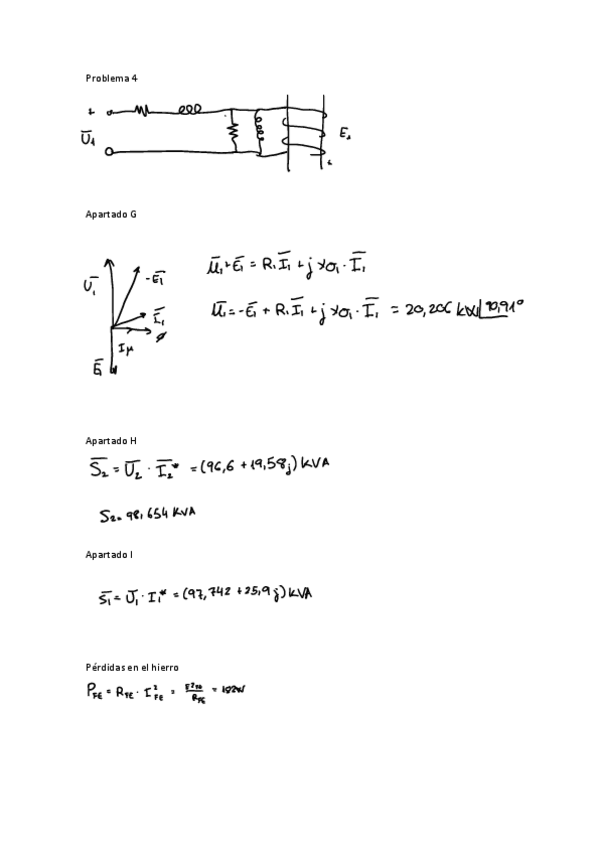 Problema 4
U̅₁
E₁
Apartado G
U̅₁ -E̅₁ I̅₁ ϕ Iμ E̅₁
U̅₁+E̅₁ = R₁I̅₁ + j Xσ₁ · I̅₁
U̅₁ = -E̅₁ + R₁I̅₁ + j Xσ₁ · I̅₁ = 20,206
Apartado H
S̅₂ = U̅₂ · I̅₂* = (96,6 + 19,58j) KVA
S₂ = 98,654 KVA
Apartado I
S̅₁ = U̅₁ · I₁* = (97,742 + 25,9j) KVA
Pérdidas en el hierro
P_FE = R_FE · I²_FE =